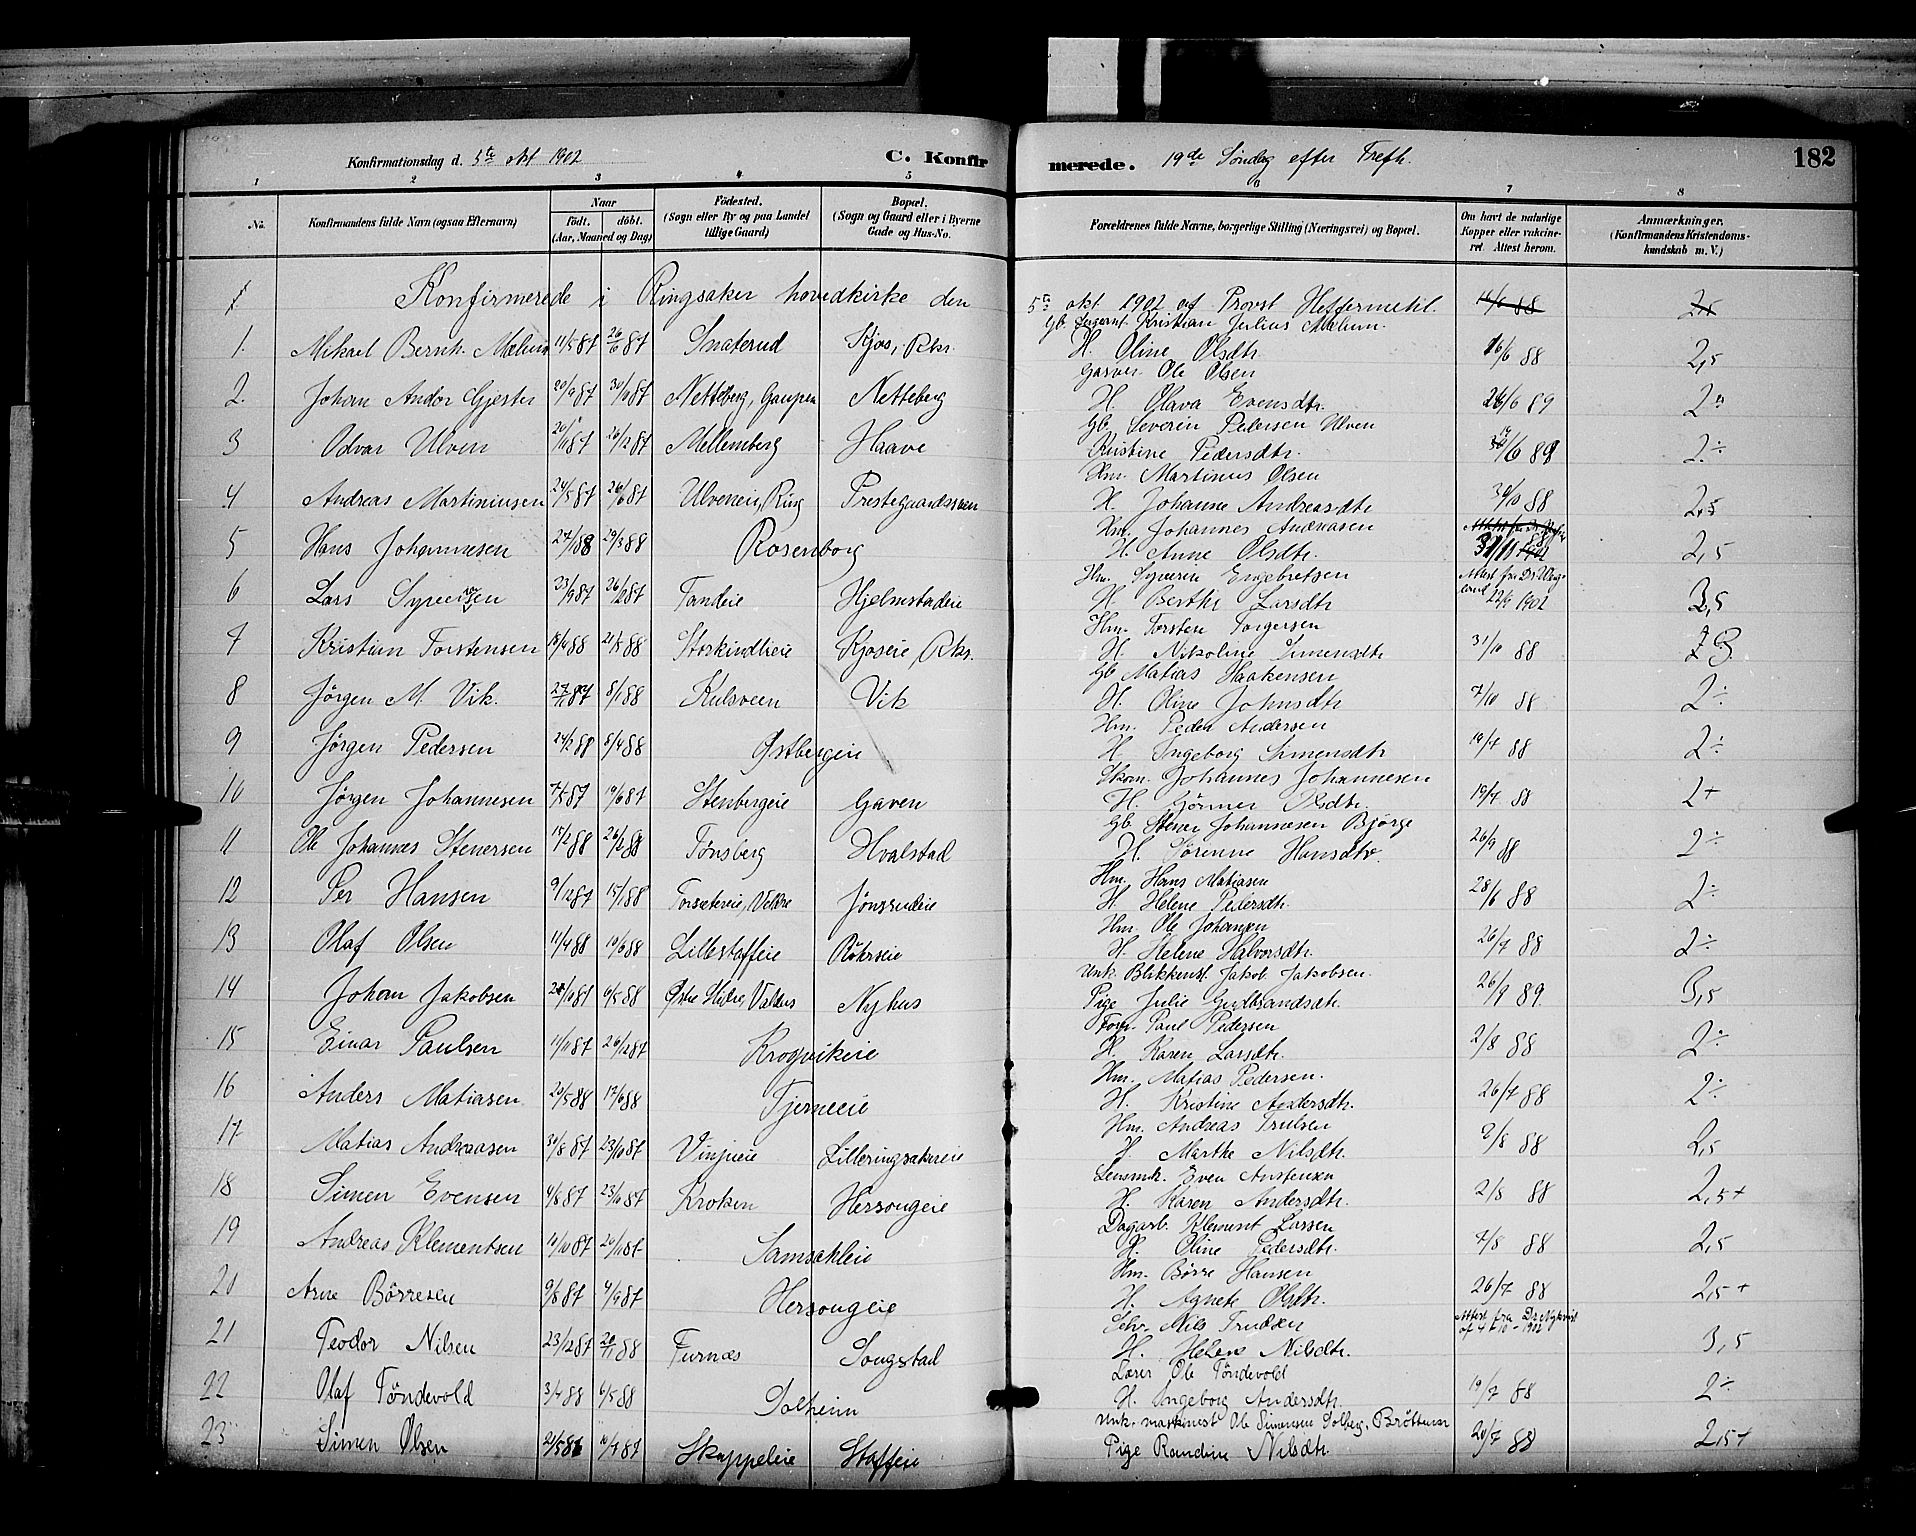 Konfirmationsdag d. 5te okt 1902 C. Konfirmerede. 19de Søndag efter Trefh. 182
1 2 3 4 5 6 7 8
No. Konfirmandens fulde Navn (ogsaa Efternavn) Naar født. døbt. (Aar, Maaned og Dag) Fødested. (Sogn eller By og paa Landet tillige Gaard) Bopæl. (Sogn og Gaard eller i Byerne Gade og Hus-No. Forældrenes fulde Navne, borgerlige Stilling (Næringsvei) og Bopæl. Om havt de naturlige Kopper eller vakcineret. Attest herom. Anmærkninger. (Konfirmandens Kristendomskundskab m. V.)
Konfirmerede i Ringsaker hovedkirke den 5te okt 1902 af Provst
Gb. Kristian Julius Mælum.
1. Mikael Bernh. Mælum 11/5 87 26/6 87 Smaterud Kjos, Rkr. H. Oline Olsdtr. 16/6 88 2,5
Garver Ole Olsen
2. Johan Andor Gjester 20/9 87 30/10 87 Netteberg, Gaupen Netteberg H. Olava Evensdtr. 26/6 89
Gb. Severin Pedersen Ulven
3 Odvar Ulven 20/11 87 26/12 87 Mellemberg Haave Kristine Pedersdtr. 2÷
Hm. Martinus Olsen
4 Andreas Martiniusen 24/5 87 26/6 87 Ulveneie, Ring Prestegaardssveen H. Johanne Andreasdtr 30/10 88 2,5
Hm. Johannes Andreasen
5 Hans Johannesen 27/1 88 29/3 88 Rosenborg H. Anne Olsdtr. 2,5
Hm. Syveren Engebretsen Attest fra Dr.
6 Lars 23/9 87 Tandeie Hjelmstadeie H. Berthe Larsdtr 22/9 1902 3,5
Hm. Torsten Torgersen
7 Kristian Torstensen 21/5 88 Storkindlieie Kjoseie, Rkr. H. Nikoline Simensdtr 31/10 88
Gb Matias Haakensen
8 Jörgen M. Vik. 27/11 87 8/1 88 Kulsveen Vik H. Oline Johnsdtr 7/10 88 2÷
Hm. Peder Andersen
9 Jörgen Pedersen 24/2 88 8/4 88 Østbergeie H Ingeborg Simensdtr 19/7 88 2÷
Skom. Johannes Johannesen
10 Jörgen Johannesen 7/5 87 19/6 87 Stenbergeie Gaven H. Olsdtr. 19/7 88 2+
Gb. Stener Johannesen Bjørge
11 Ole Johannes Stenersen 15/2 88 Tønsberg Hvalstad H. Sørenne Hansdtr. 26/9 88 2÷
Hm. Hans Matiasen
12 Per Hansen 9/12 87 15/1 88 Forsætereie, Veldre Jönsrudeie H Helene Pedersdtr. 28/6 88 2÷
Hm. Ole Johansen
13 Olaf Olsen 11/4 88 10/6 88 Lillestaffeie Röhrseie H. Helene Halvorsdtr. 26/7 88 2÷
Unk. Blikkensl. Jakob Jakobsen.
14 Johan Jakobsen 6/5 88 Nyhus Pige Julie Gudbrandsdtr. 26/9 89. 3,5
Form. Paul Pedersen
15 Einar Paulsen 11/11 87 26/12 87 Krogvikeie H. Karen Larsdtr. 2/8 88 2÷
Hm. Matias Pedersen.
16 Anders Matiasen 20/5 88 17/6 88 Tjerneeie H. Kristine Andersdtr. 26/7 88 2÷
Hm. Andreas Trulsen
17 Matias Andreasen 30/8 87 23/10 87 Vinjueie Lilleringsakereie H Marthe Nilsdtr. 2/8 88 2,5
Even Austensen
18 Simen Evensen 4/8 87 23/10 87 Kroken Hersougeie H. Karen Andersdtr. 2/8 88 2,5+
Dagarb. Klement Larsen
19 Andreas Klementsen 14/10 87 20/11 87 Samsahleie H. Oline Pedersdtr. 7/8 88 2,5
Hm. Börre Hansen
20 Arne Börresen 9/8 87 4/9 87 Hersougeie H. Agnete Olsdtr. 26/7 88 2,5+
Selv. Nils Trulsen Attest fra Dr. Nykvist af 4-10-1902
21 Teodor Nilsen 23/12 87 20/11 88 Furnæs Sougstad H. Helene Nilsdtr. 3,5
Lærer Ole Töndevold
22 Olaf Töndevold 3/4 88 6/5 88 Solheim H. Ingeborg Andersdtr. 19/7 88 2÷
Unk. maskinist Ole Simensen Solberg, Brøttum
23 Simen Olsen 21/5 87 10/7 87 Skappeleie Staffeie Pige Randine Nilsdtr. 20/7 88 2,5+